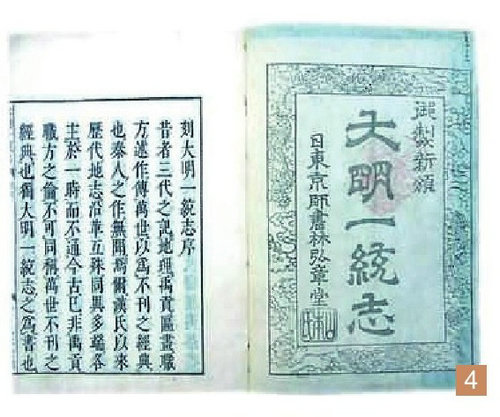 御製新頒
大明一統志
日東京師書林弘章堂
刻大明一統志序
昔者三代之說地理禹貢區畫職
方述作傳萬世以爲不刊之經典
也秦人之作無聞焉爾漢氏以來
歷代地志沿革互殊同異多端各
主於一時而不通今古已非禹貢
職方之倫不可同稱萬世不刊之
經典也獨大明一統志之爲書也
4